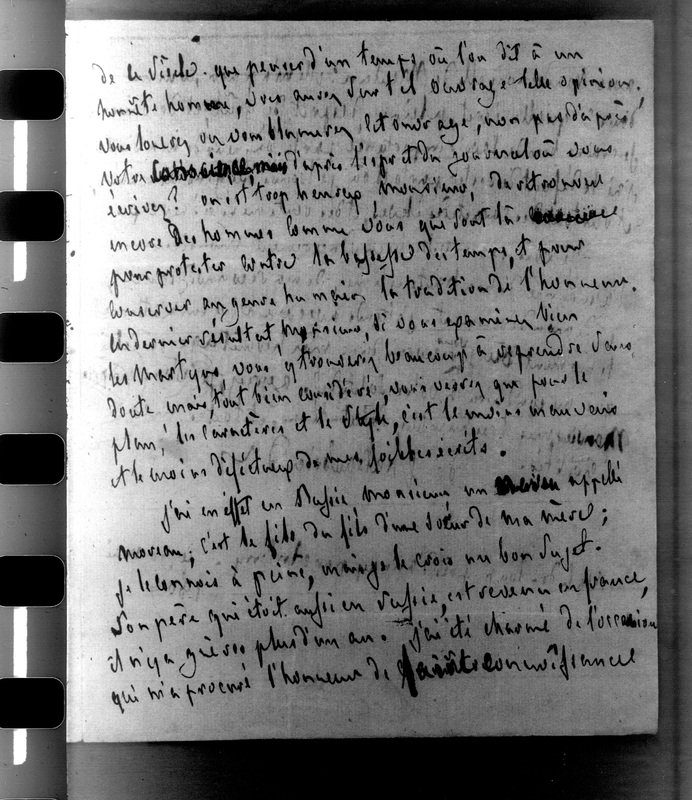 de ce siècle. que penser d'un temps où l'on dit à un
honnête homme, vous aurez sur tel ouvrage telle opinion,
vous louerez ou vous blamerez cet ouvrage, non pas d'après
votre conscience, mais d'après l'esprit du journal où vous
écrivez? on est trop heureux, monsieur, de retrouver
encore des hommes comme vous qui sont là
pour protester contre la bassesse des temps, et pour
conserver au genre humain la tradition de l'honneur.
en dernier résultat monsieur, si vous examinez bien
les Martyrs vous y trouverez beaucoup à reprendre sans
doute mais, tout bien considéré, vous verrez que pour le
plan, les caractères et le style, c'est le moins mauvais
et le moins défectueux de mes foibles écrits.
j'ai en effet en Russie monsieur un neveu appellé
moreau; c'est le fils du fils d'une soeur de ma mère;
je le connois à peine, mais je le crois un bon sujet.
son père qui étoit aussi en Russie, est revenu en france,
il n'y a guères plus d'un an. j'ai été charmé de l'occasion
qui m'a procuré l'honneur de faire connoissance